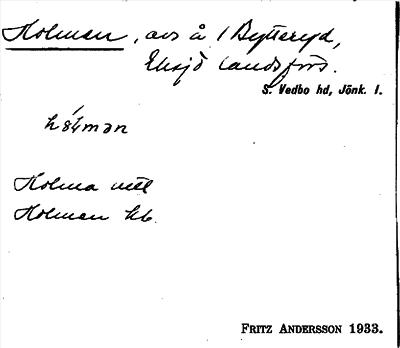 Holmen, avs å 1 Bytteryd,
Eksjö landsförs.
S. Vedbo hd, Jönk. l.
Holma mtl
Holmen kb.
FRITZ ANDERSSON 1933.